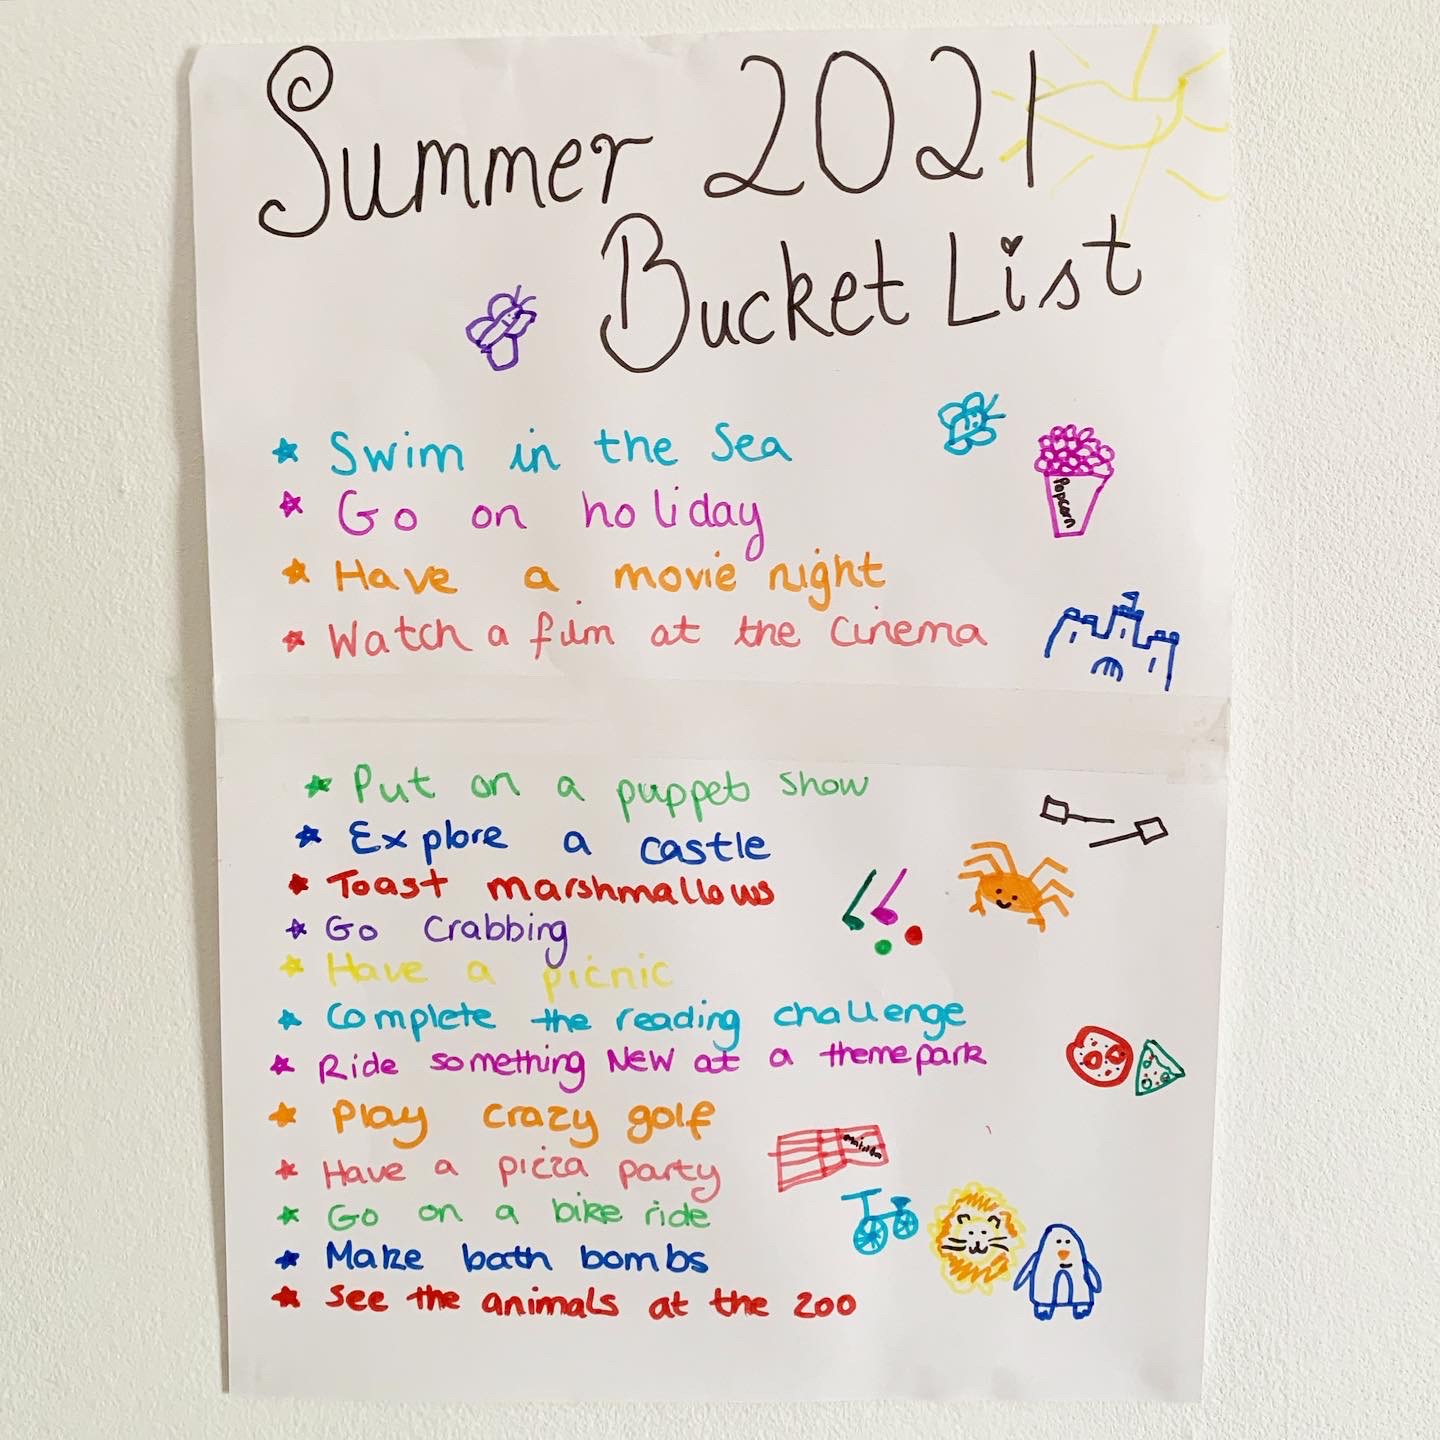 Summer 2021
Bucket List
Swim in the Sea
Go on holiday
Popcorn
Have a movie night
Watch a film at the Cinema
Put on a puppet show
Explore a castle
Toast marshmallows
Go Crabbing
Have a picnic
Complete the reading challenge
Ride something NEW at a themepark
Play crazy golf
Have a pizza party
Go on a bike ride
Make bath bombs
See the animals at the zoo